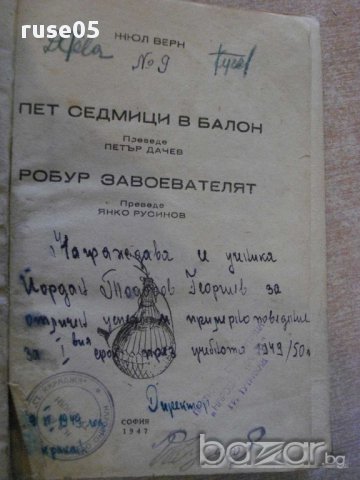 ruse05
ЖЮЛ ВЕРН
№ 9
ПЕТ СЕДМИЦИ В БАЛОН
Преведе
ПЕТЪР ДАЧЕВ
РОБУР ЗАВОЕВАТЕЛЯТ
Преведе
ЯНКО РУСИНОВ
Награждава се ученика
Йордан Тодоров Георгиев за
отличен успех и примерно поведение
за I вия срок през учебното 1949/50 г.
Директор:
1949 год.
СОФИЯ
1947
bazar.bg